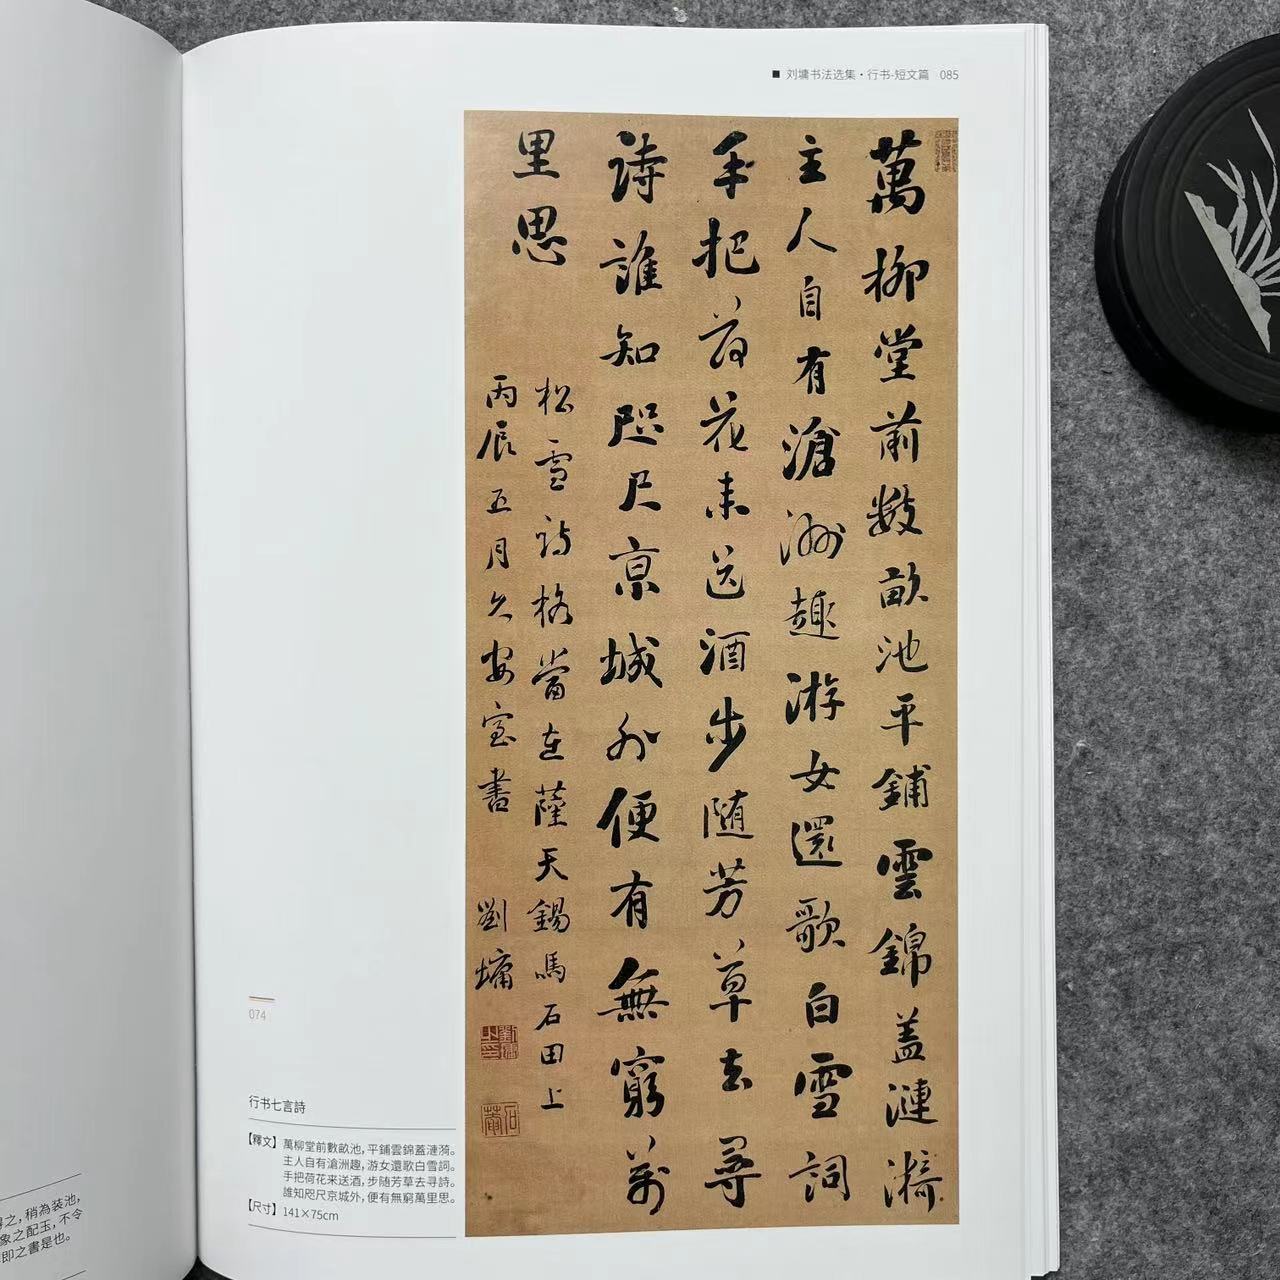 ■ 刘墉书法选集·行书-短文篇 085
萬柳堂前數畝池平鋪雲錦蓋漣漪
主人自有滄洲趣游女還歌白雪詞
手把荷花来送酒步随芳草去尋
詩誰知咫尺京城外便有無窮萬
里思
松雪詩格當在薩天錫馬石田上
丙辰五月久安室書 劉墉
劉墉之印
石菴
074
行书七言詩
【釋文】萬柳堂前數畝池，平鋪雲錦蓋漣漪。
主人自有滄洲趣，游女還歌白雪詞。
手把荷花来送酒，步随芳草去寻詩。
誰知咫尺京城外，便有無窮萬里思。
【尺寸】141×75cm
之，稍為装池，
象之配玉，不令
即之書是也。